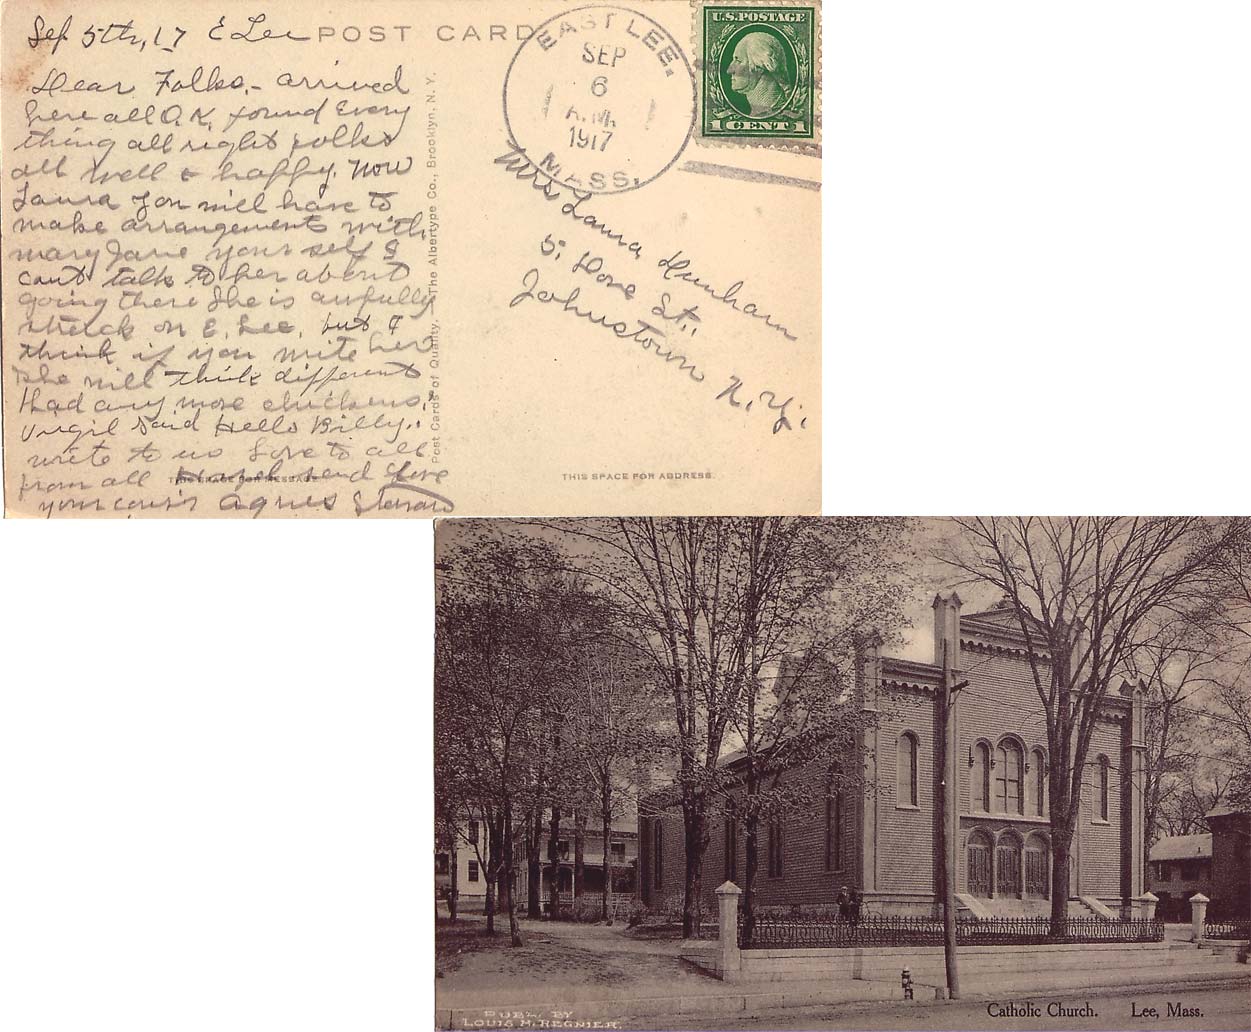 Sep 5th, 17 E Lee
POST CARD
EAST LEE.
SEP
6
A.M.
1917
MASS.
U.S. POSTAGE
1 CENT 1
Dear Folks, - arrived
here all O.K. found Every
thing all right folks
all well & happy. Now
Laura you will have to
make arrangements with
mary Jane your self I
cant talk to her about
going there She is awfully
struck on E. Lee, but I
think if you write her
She will think different
Had any more chickens.
Virgil Said Hello Billy.
write to us Love to all
from all Hazel send Love
your cousin Agnes
THIS SPACE FOR MESSAGE
Post Cards of Quality. The Albertype Co., Brooklyn, N. Y.
Mrs Laura Dunham
5, Dove St.,
Johnstown N.Y.
THIS SPACE FOR ADDRESS.
PUBL. BY
LOUIS M. REGNIER.
Catholic Church. Lee, Mass.